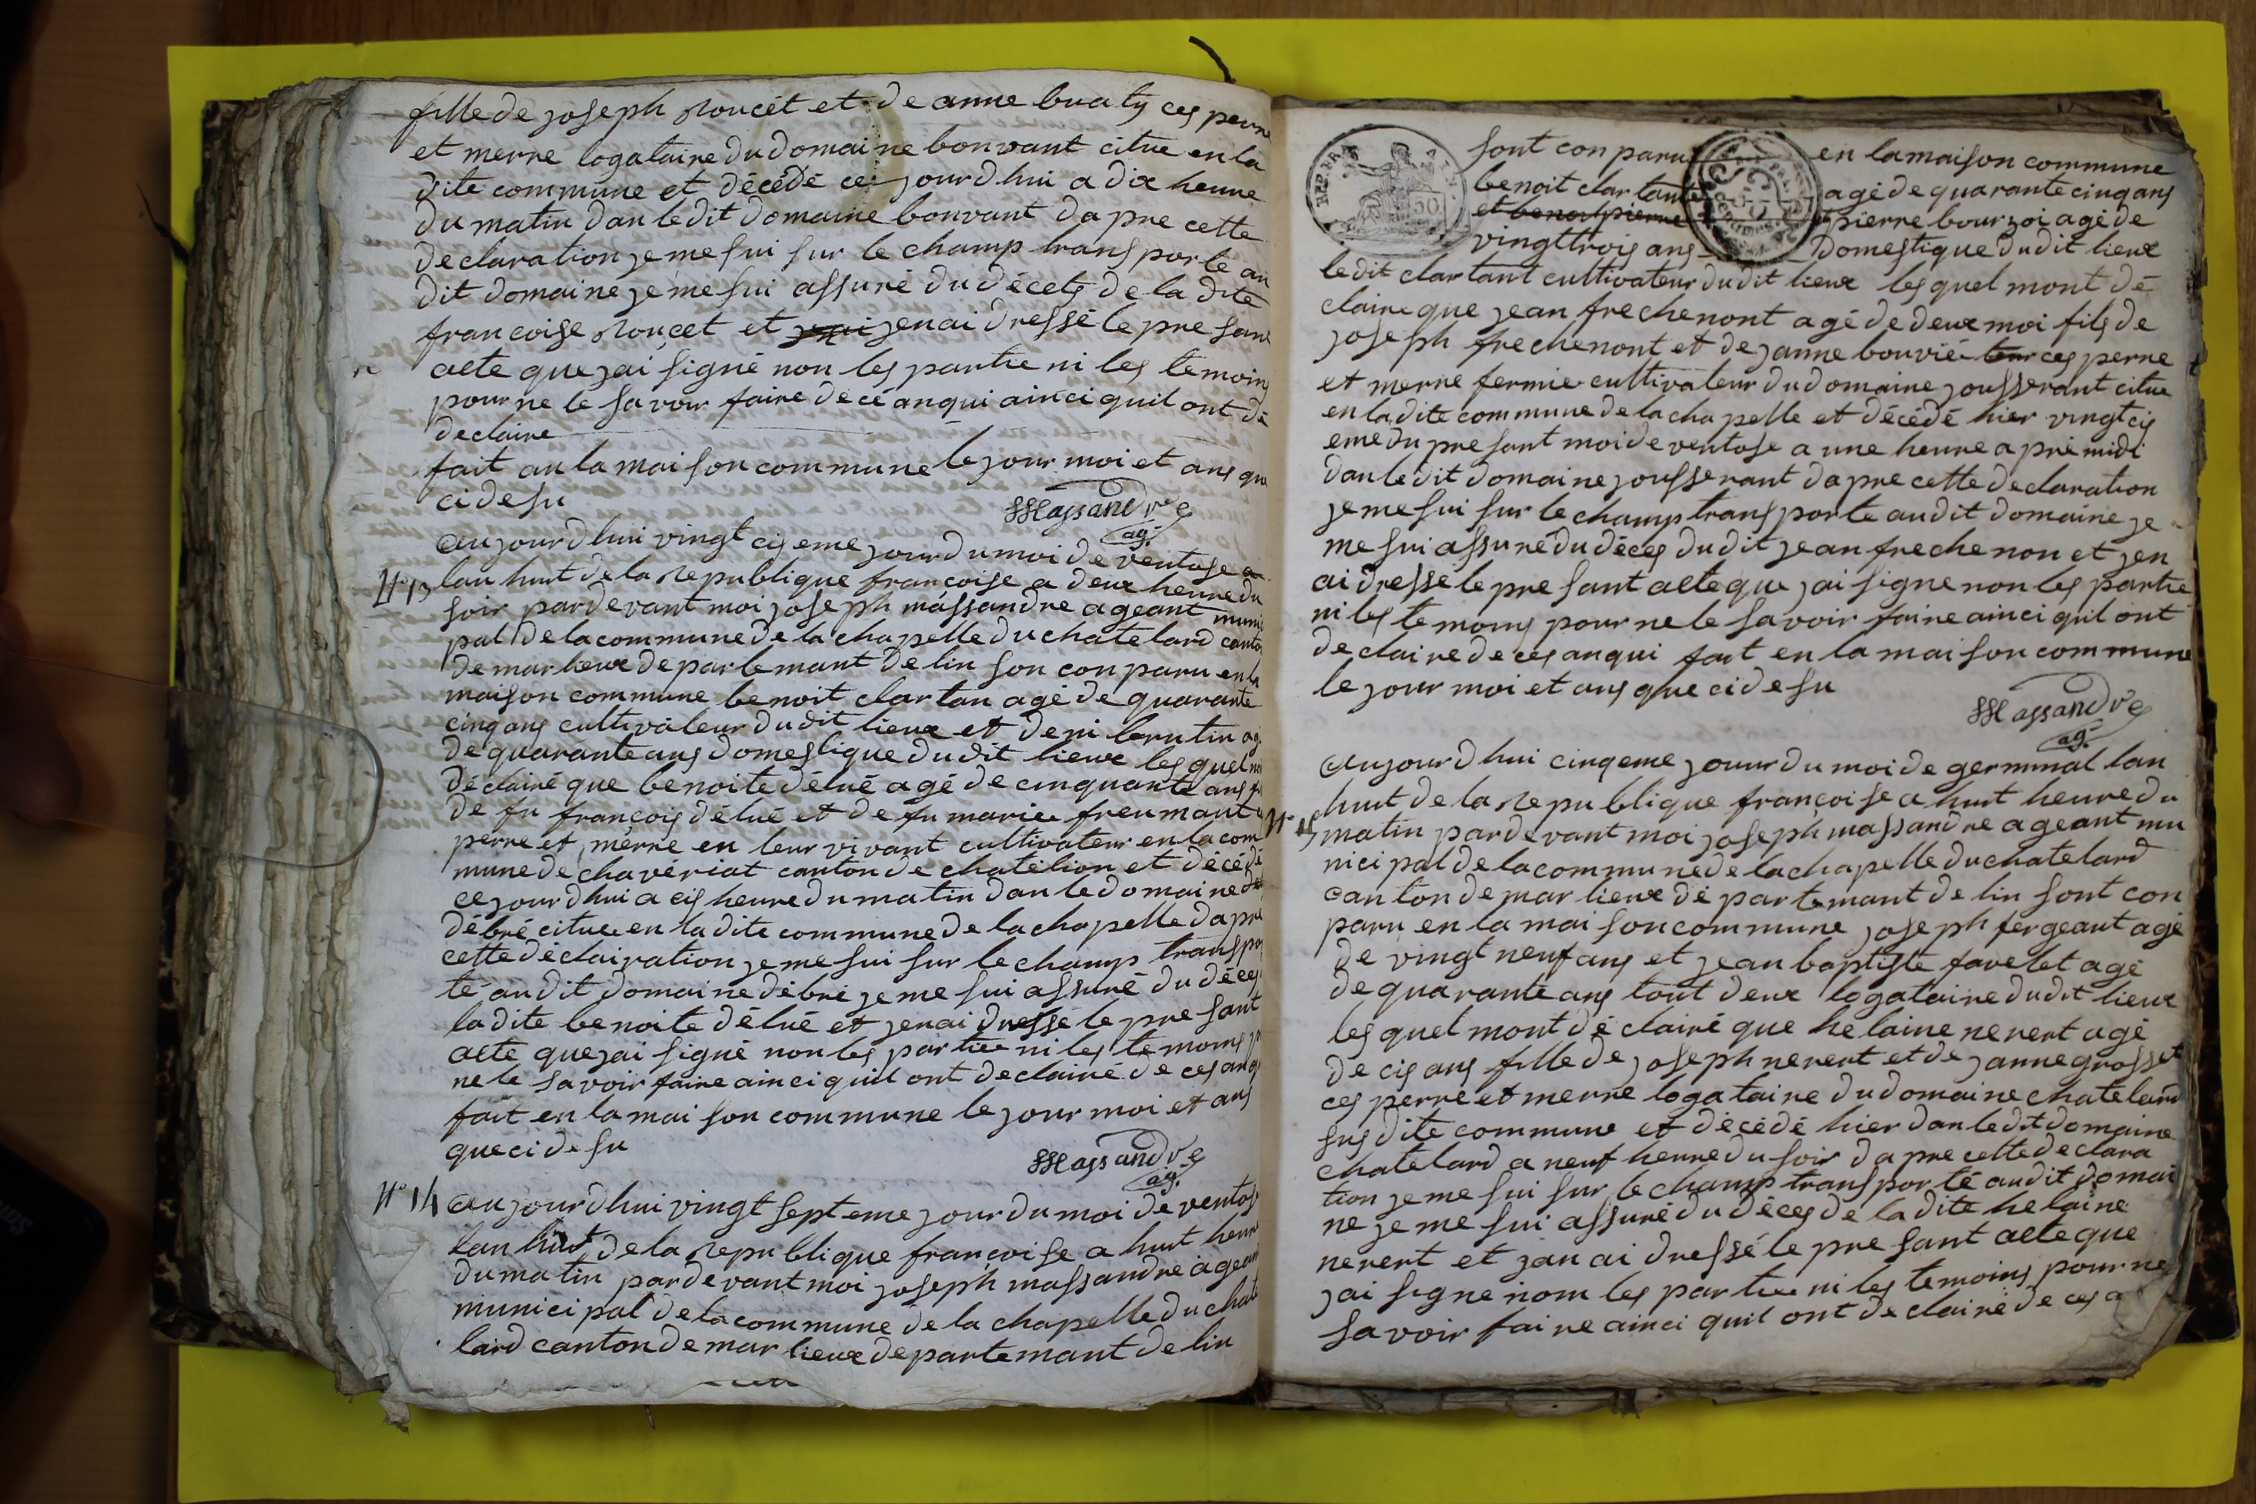 fille de joseph roucét et de anne buaty ces perre
et merre logataire du domaine bonvant citue en la
dite commune et décédé cei jourdhui a dix heure
du matin dan le dit domaine bonvant da pre cette
declaration je me sui sur le champ trans porté au
dit domaine je me sui assuré du décets de la dite
francoise roucet et jenai dressé le pre sant
acte que jai signé non les partie ni les temoins
pour ne le savoir faire de cé anqui ainci quil ont dé
declaire
fait an la maison commune le jour moi et ans que
ci desu
Massandre
ag.
N° 13
aujourdhui vingt cis eme jour du moi de ventose a
lan huit de la republique françoise a deux heure du
soir pardevant moi joseph massandre ageant muni
pal de la commune de la chapelle du chatelard canto
de mar lieux departemant de lin son con paru en la
maison commune benoit clar tan agé de quarante
cinq ans cultivateur du dit lieux et deni brutin ag
de quarante ans domestique du dit lieux les quel
déclairé que benoite délué agé de cinquante ans
de fu françois délué et de fu marie freumant
perre et mérre en leur vivant cultivateur en la com
mune de chavériat canton de chatélion et décédé
ce jourdhui a cis heure du matin dan le domaine
débré citue en la dite commune de la chapelle dapré
cette déclairation je me sui sur le champ transpo
té au dit domaine débré je me sui assuré du déces
la dite benoite délué et jenai dressé le pre sant
acte que jai signé non les partie ni les temoins
ne le savoir faire ainci quil ont declaire de ces anq
fait en la maison commune le jour moi et ans
que ci de su
Massandre
ag.
N° 14
aujourdhui vingt sept eme jour du moi de ventos
lan huit de la republique françoise a huit heur
du matin pardevant moi joseph massandre agean
munici pal de la commune de la chapelle du chate
lard canton de mar lieux departemant de lin
sont con paru en la maison commune
benoit clar tant agé de quarante cinq ans
et benoit pierre pierre bourzoi agé de
vingt trois ans domestique du dit lieux
le dit clar tant cultivateur du dit lieux les quel mont dé
claire que jean frechenont agé de deux moi fils de
joseph frechenont et de janne bouvié ces perre
et merre fermie cultivateur du domaine jousserant citue
en la dite commune de la chapelle et décédé hier vingt cis
eme du pre sant moi de ventose a une heure a pré midi
dan le dit domaine jousserant da pre cette declaration
je me sui sur le champ trans porte au dit domaine je
me sui assuré du déces du dit jean frechenon et jen
ai dressé le pre sant acte que jai signe non les partie
ni les temoins pour ne le savoir faire ainci quil ont
declaire de ces anqui fait en la maison commune
le jour moi et ans que ci de su
Massandre
ag.
N° 15
aujourdhui cinq eme jouur du moi de germinal lan
huit de la republique françoise a huit heure du
matin pardevant moi joseph massandre ageant mu
nici pal de la commune de la chapelle du chatelard
canton de mar lieux dé partemant de lin sont con
paru en la maison commune joseph fergeant agé
de vingt neuf ans et jean baptiste favelet agé
de quarante ans tout deux logataire du dit lieux
les quel mont dé clairé que he laine nerert agé
de cis ans fille de joseph nerert et de janne grosset
ces perre et merre logataire du domaine chatelard
sus dite commune et décédé hier dan le dit domaine
chatelard a neuf heure du soir da pre cette declara
tion je me sui sur le champ trans por té au dit domai
ne je me sui assuré du déces de la dite he laine
nerert et jan ai dressé le pre sant acte que
jai signe nom les partie ni les temoins pour ne
savoir faire ainci quil ont declaire de ces a